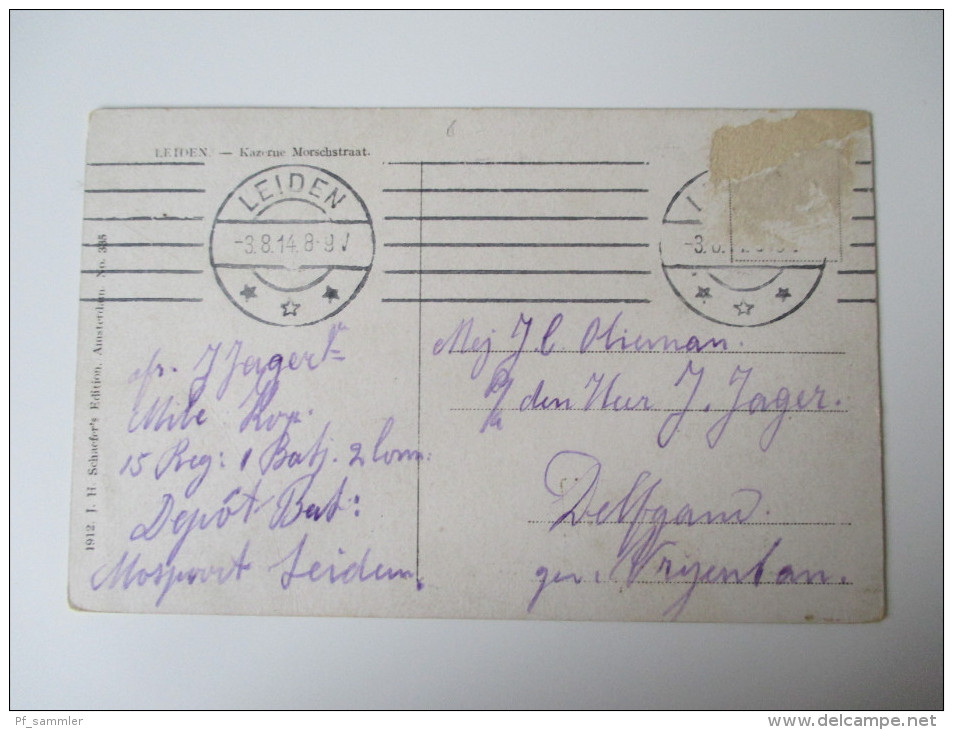 LEIDEN. — Kazerne Morschstraat.
LEIDEN
-3.8.14. 8-9 V
1912. J. H. Schaefer's Edition, Amsterdam. No. 335
afr. J Jager
Mile Kop.
15 Reg: 1 Batj. 2 Com:
Depôt Bat:
Mospoort Leiden.
Mej J C Olieman.
p/a den Heer J. Jager.
Delfgauw.
gem. Vrijenban.
Pf_sammler
www.delcampe.net